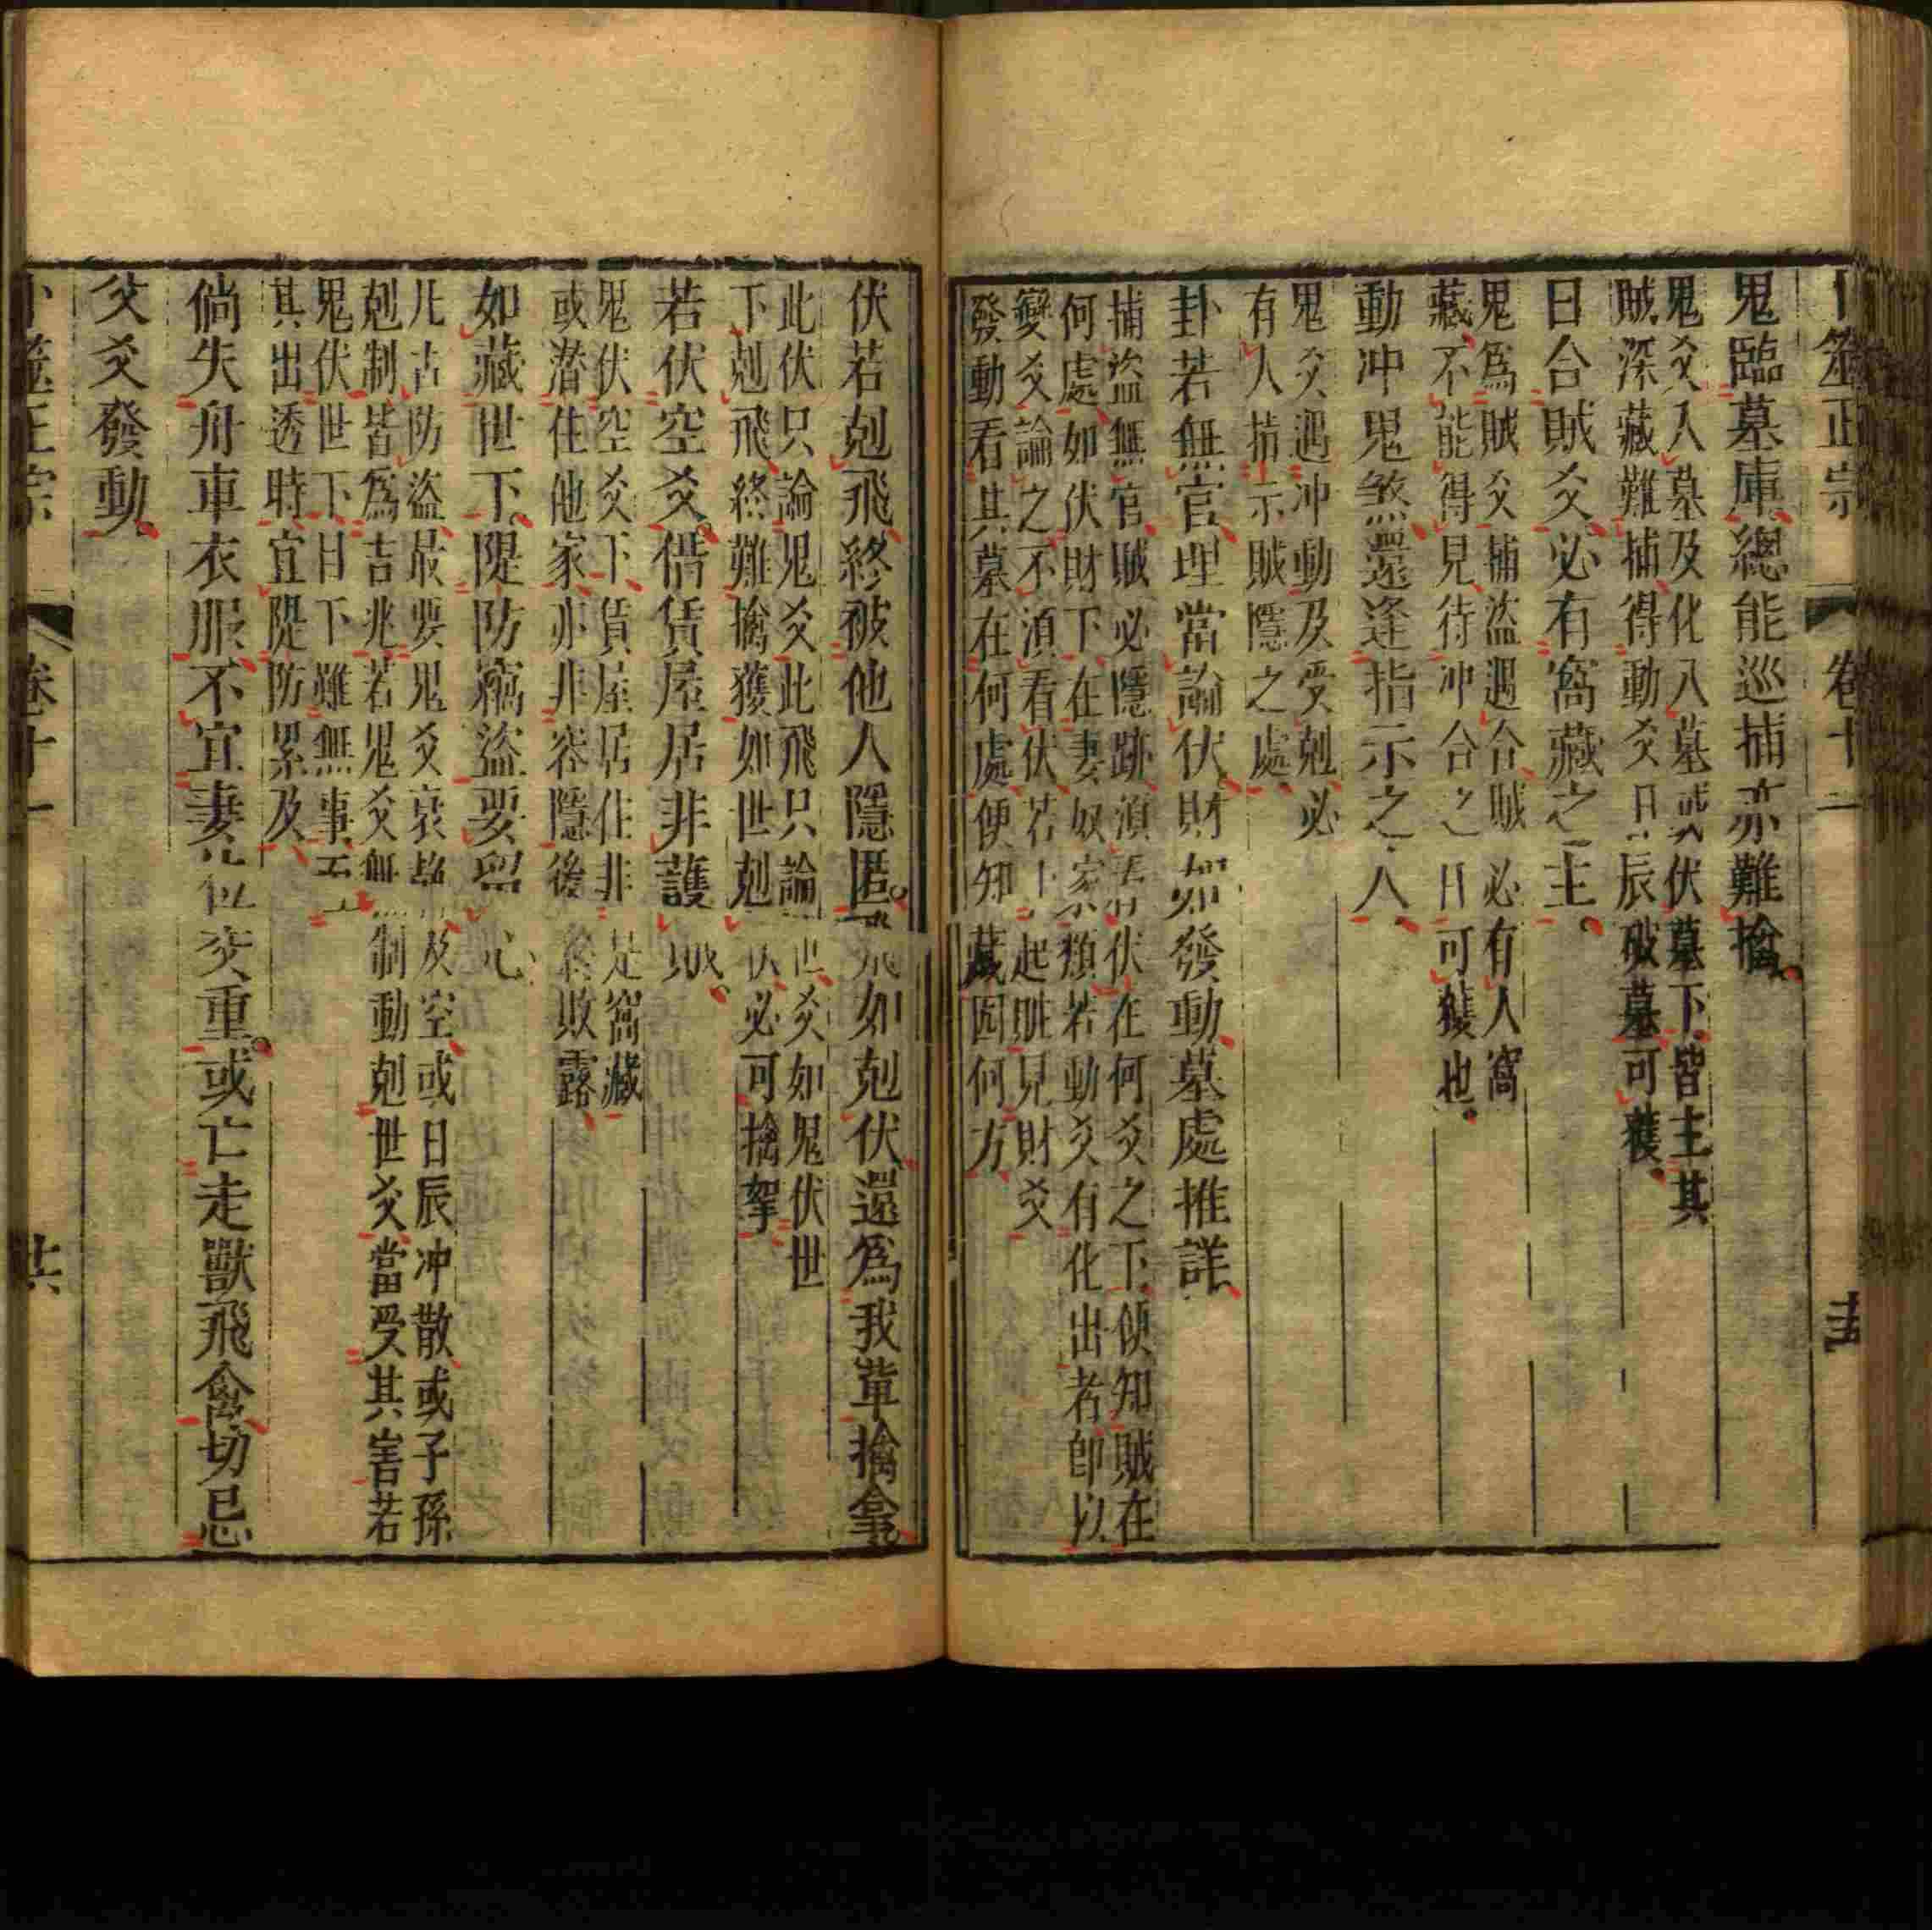 卜筮正宗 卷十一
鬼臨墓庫總能巡捕亦難擒
鬼爻入墓及化入墓或伏墓下皆主其
賊深藏難捕得動爻日辰破墓可獲
日合賊爻必有窩藏之主
鬼爲賊爻捕盜遇合賊必有人窩
藏不能得見待冲合之日可獲也
動冲鬼煞還逢指示之人
鬼爻遇冲動及受剋必
有人指示賊隱之處
卦若無官理當論伏財如發動墓處推詳
捕盜無官賊必隱跡湏看伏在何爻之下便知賊在
何處如伏財下在妻奴家類若動爻有化出者卽以
變爻論之不湏看伏若上起賍見財爻
發動看其墓在何處便知藏固何方
伏若剋飛終被他人隱匿飛如剋伏還爲我輩擒拿
此伏只論鬼爻此飛只論世爻如鬼伏世
下剋飛終難擒獲如世剋伏必可擒拏
若伏空爻借賃屋居非護賊
鬼伏空爻下賃屋居住非是窩藏
或潛住他家亦非容隱後終敗露
如藏世下隄防竊盜要留心
凡占防盜最要鬼爻衰故及空或日辰冲散或子孫
剋制皆爲吉兆若鬼爻無制動剋世爻當受其害若
鬼伏世下目下雖無事至
其出透時宜隄防累及
倘失舟車衣服不宜妻位交重或亡走獸飛禽切忌
父爻發動
卜筮正宗 卷十一 共